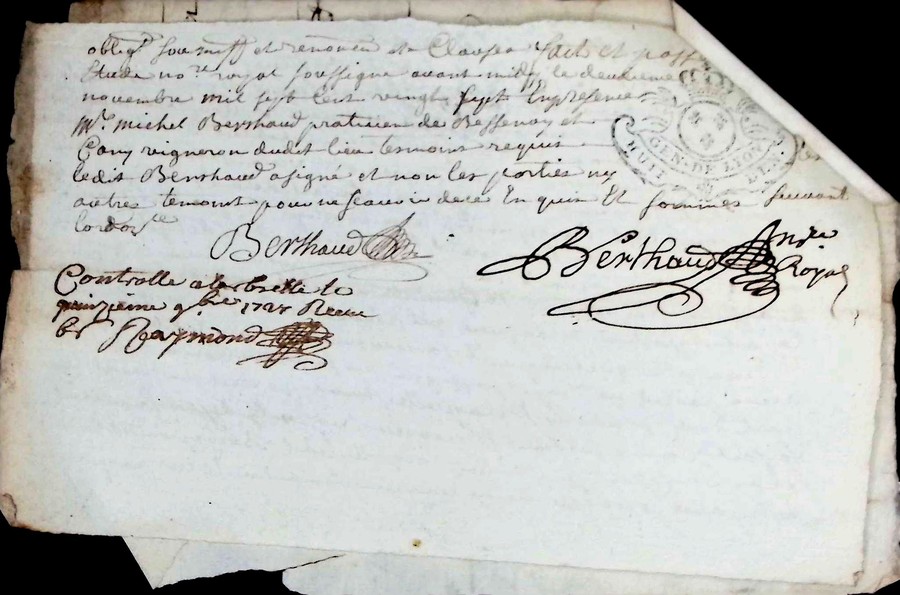 oblig.^s sousmiss et renonen et Clauses fait et pass
Etude no.^re royal soussigné avant midy le deuxieme
novembre mil sept cent vingt sept En presence
M.^e michel Berthaud praticien de Bessenay et
Cany vigneron dudit lieu temoins requis
ledit Berthaud a signé et non les parties ny
autres temoins pour ne scavoir de ce Enquis Et sommes suivant
lordo^ce
Berthaud
Berthaud No.^re Royal
HUIT
GEN. DE LYON
Controllé a larbrelle le
quinzieme 9bre 1727 Receu
Raymond